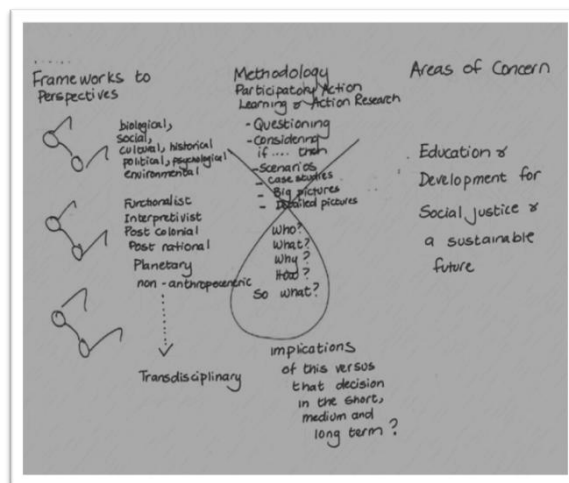 Frameworks to
Perspectives
biological,
social,
cultural, historical
political, psychological
environmental
Functionalist
Interpretivist
Post colonial
Post national
Planetary
non-anthropocentric
Transdisciplinary
Methodology
Participatory Action
Learning & Action Research
- Questioning
- Considering
if .... then
- Scenarios
- case studies
- Big pictures
- Detailed pictures
Who?
What?
Why?
How?
So what?
implications
of this versus
that decision
in the short,
medium and
long term?
Areas of Concern
Education &
Development for
Social Justice &
a sustainable
future